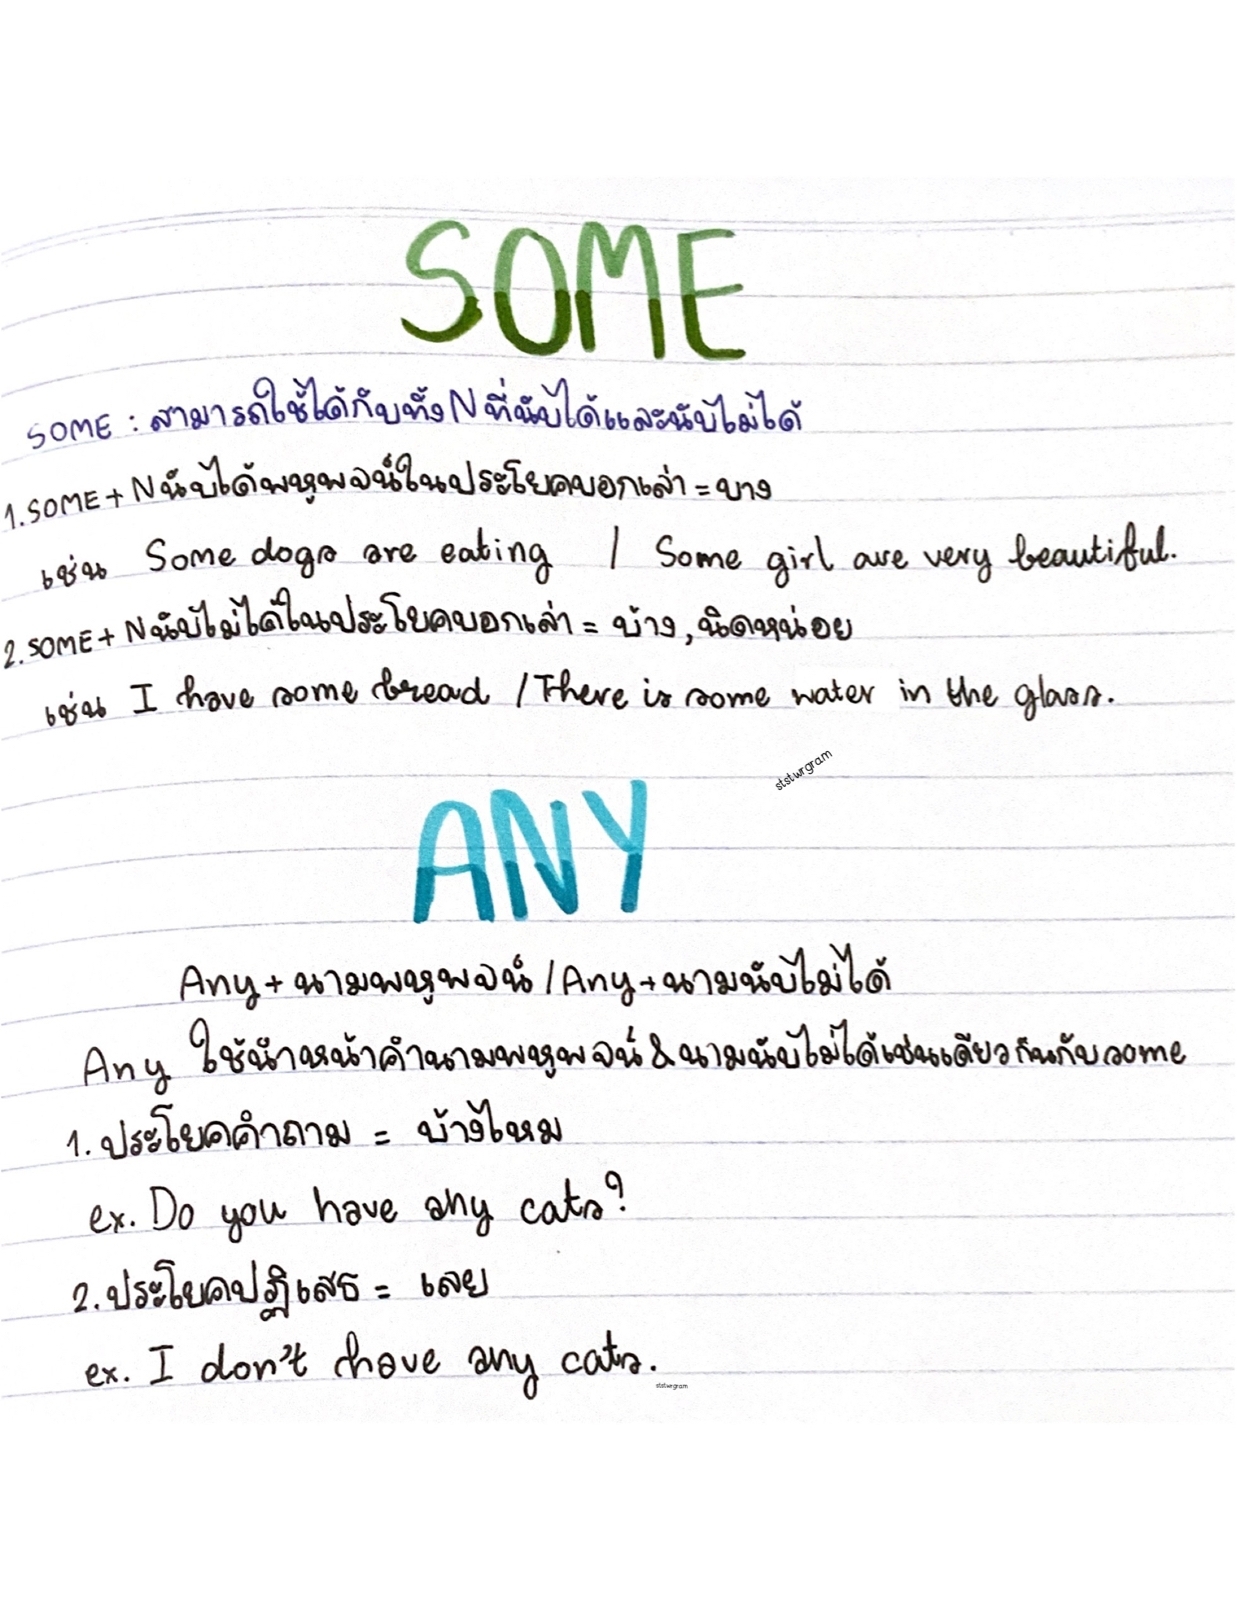 SOME
SOME : สามารถใช้ได้กับทั้ง N ที่นับได้และนับไม่ได้
1. SOME + N นับได้พหูพจน์ในประโยคบอกเล่า = บาง
เช่น Some dogs are eating / Some girl are very beautiful.
2. SOME + N นับไม่ได้ในประโยคบอกเล่า = บ้าง, นิดหน่อย
เช่น I have some bread / There is some water in the glass.
ststwrgram
ANY
Any + นามพหูพจน์ / Any + นามนับไม่ได้
Any ใช้นำหน้าคำนามพหูพจน์ & นามนับไม่ได้เช่นเดียวกันกับ some
1. ประโยคคำถาม = บ้างไหม
ex. Do you have any cats?
2. ประโยคปฏิเสธ = เลย
ex. I don't have any cats.
ststwrgram